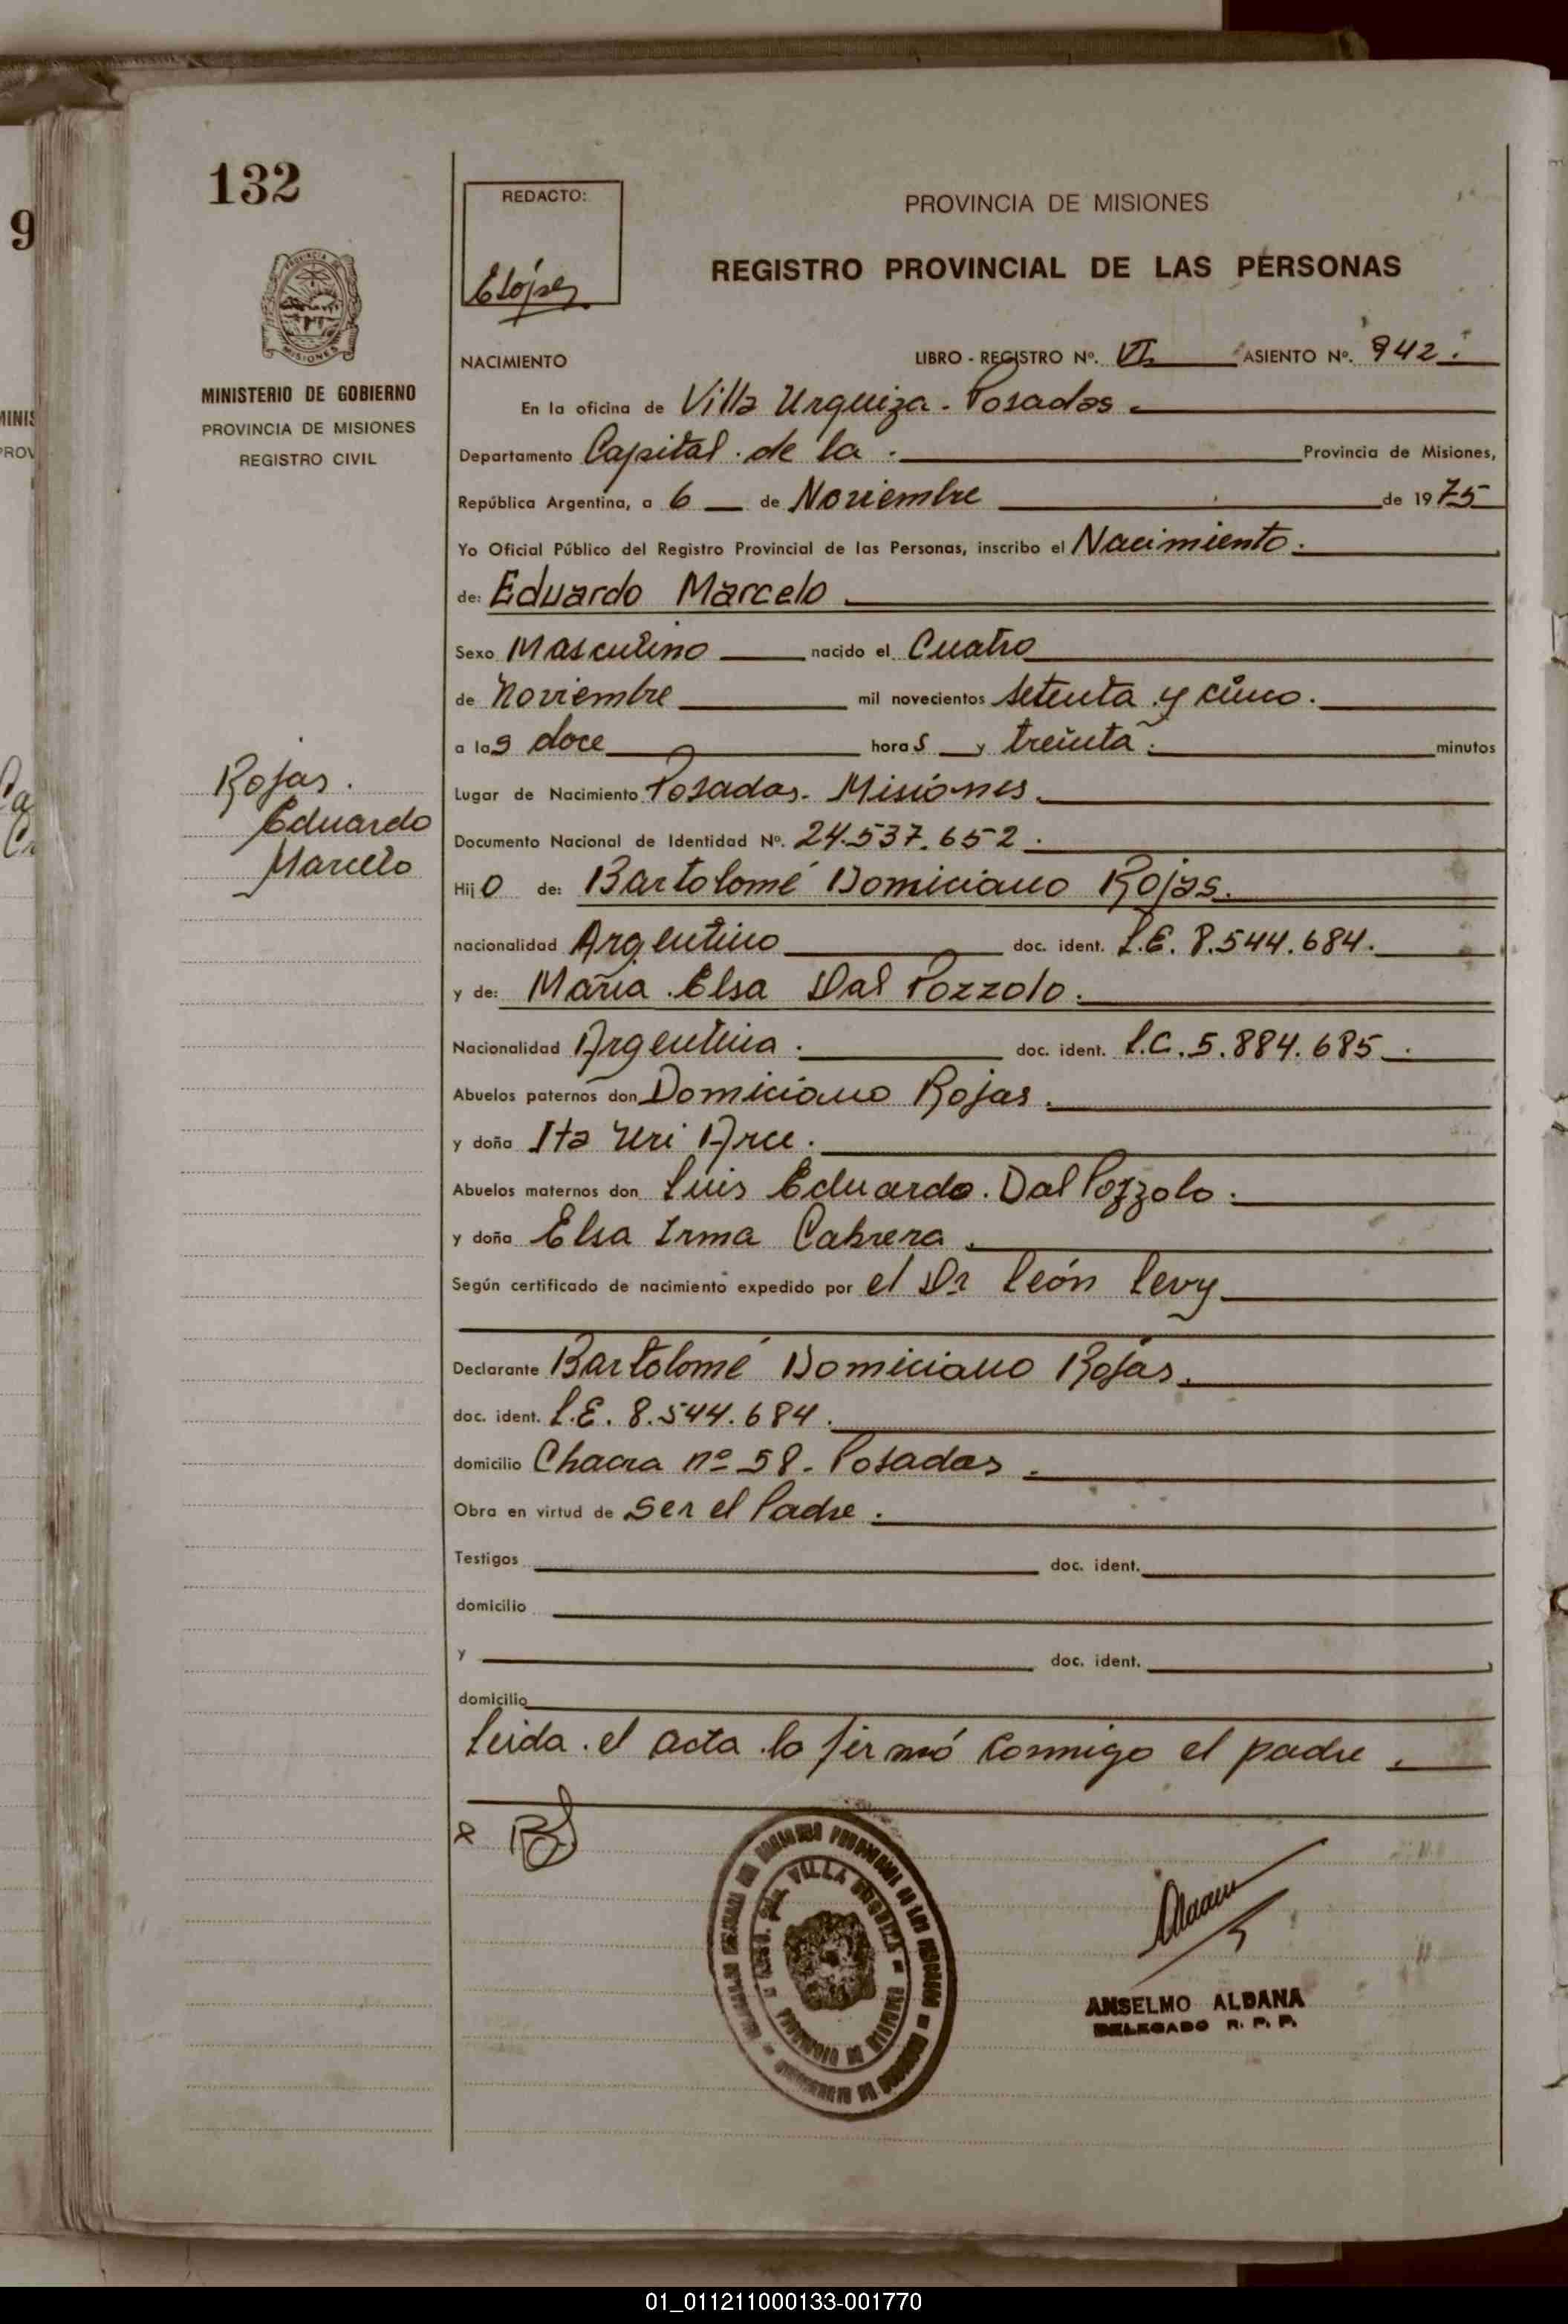 132
REDACTO:
ELópez
PROVINCIA DE MISIONES
REGISTRO PROVINCIAL DE LAS PERSONAS
MINISTERIO DE GOBIERNO
PROVINCIA DE MISIONES
REGISTRO CIVIL
NACIMIENTO LIBRO - REGISTRO Nº. VI ASIENTO Nº. 942.
En la oficina de Villa Urquiza - Posadas
Departamento Capital de la Provincia de Misiones,
República Argentina, a 6 de Noviembre de 1975
Yo Oficial Público del Registro Provincial de las Personas, inscribo el Nacimiento.
de: Eduardo Marcelo
Sexo Masculino nacido el Cuatro
de Noviembre mil novecientos setenta y cinco.
a las doce horas y treinta. minutos
Rojas.
Eduardo
Marcelo
Lugar de Nacimiento Posadas. Misiones.
Documento Nacional de Identidad Nº. 24.537.652.
Hijo de: Bartolomé Domiciano Rojas.
nacionalidad Argentino doc. ident. L.E. 8.544.684.
y de: María Elsa Dal Pozzolo.
Nacionalidad Argentina. doc. ident. L.C. 5.884.685.
Abuelos paternos don Domiciano Rojas.
y doña Ita Arce.
Abuelos maternos don Luis Eduardo. Dal Pozzolo.
y doña Elsa Irma Cabrera.
Según certificado de nacimiento expedido por el Dr León Levy
Declarante Bartolomé Domiciano Rojas.
doc. ident. L.E. 8.544.684.
domicilio Chacra nº 58. Posadas.
Obra en virtud de Ser el Padre.
Testigos doc. ident.
domicilio
y doc. ident.
domicilio
Leida el acta la firmó conmigo el padre.
VILLA URQUIZA
ANSELMO ALDANA
DELEGADO R. P. P.
01_011211000133-001770